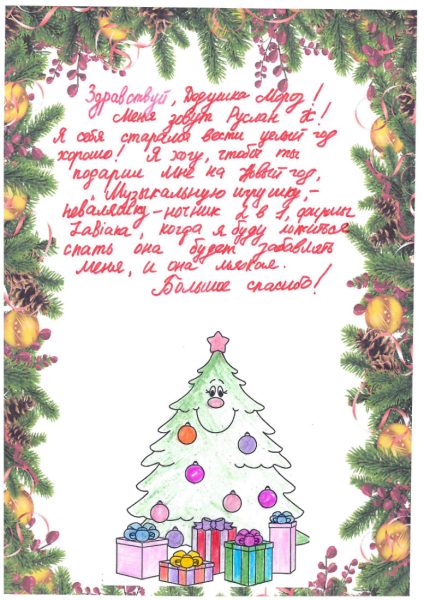 Здравствуй, Дедушка Мороз!
Меня зовут Руслан К.!
Я себя старался вести целый год
хорошо! Я хочу, чтобы ты
подарил мне на Новый год,
„Музыкальную игрушку,-
неваляшку - ночник 2 в 1, фирмы
Zabiaka, когда я буду ложиться
спать она будет забавлять
меня, и она мягкая.
Большое спасибо!